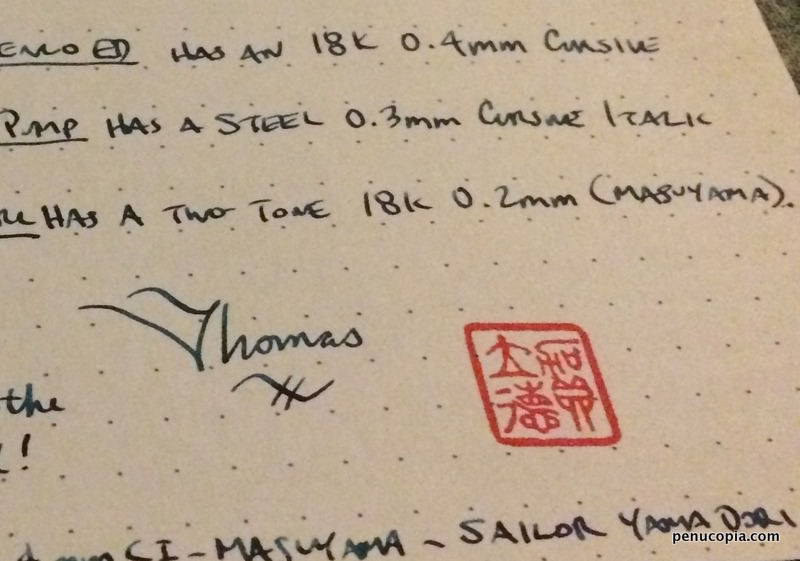 HAS AN 18K 0.4mm CURSIVE
HAS A STEEL 0.3mm CURSIVE ITALIC
HAS A TWO TONE 18K 0.2mm (MASUYAMA).
Thomas
the
mm CI - MASUYAMA - SAILOR YAMADORI
penucopia.com